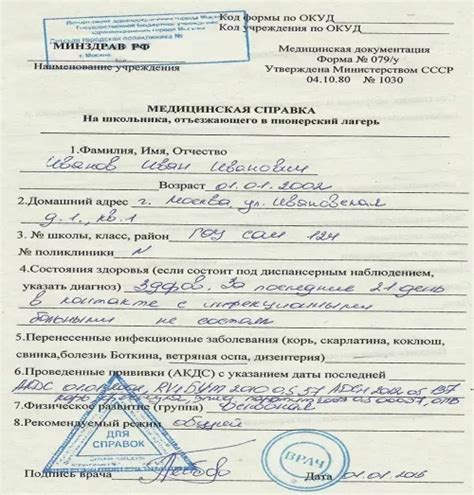 Департамент здравоохранения города Москвы
Государственное бюджетное учреждение
здравоохранения города Москвы
Детская городская поликлиника №
г. Москва
Код формы по ОКУД
Код учреждения по ОКУД
МИНЗДРАВ РФ
Медицинская документация
Форма № 079/у
Наименование учреждения
Утверждена Министерством СССР
04.10.80 № 1030
МЕДИЦИНСКАЯ СПРАВКА
На школьника, отъезжающего в пионерский лагерь
1.Фамилия, Имя, Отчество
Иванов Иван Иванович
Возраст 01.01.2002
2.Домашний адрес г. Москва, ул. Ивановская
д.1, кв.1
3. № школы, класс, район ГОУ сош 124
№ поликлиники N
4.Состояния здоровья (если состоит под диспансерным наблюдением,
указать диагноз) Здоров. За последние 21 день
в контакте с инфекционными
больными не состоял
5.Перенесенные инфекционные заболевания (корь, скарлатина, коклюш,
свинка,болезнь Боткина, ветряная оспа, дизентерия)
6.Проведенные прививки (АКДС) с указанием даты последней
АКДС
7.Физическое развитие (группа) Основная
8.Рекомендуемый режим общий
ДЛЯ
СПРАВОК
ВРАЧ
Подпись врача
Дата 01.01.2016